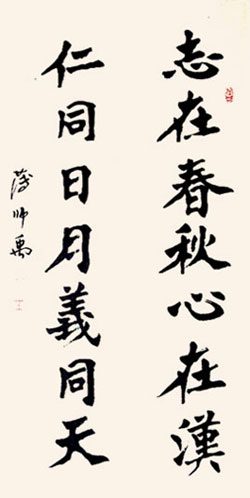 志在春秋心在漢
仁同日月義同天